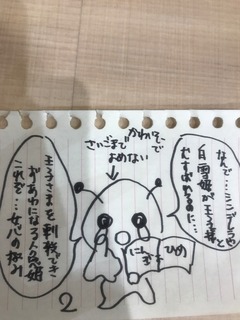 なんで…シンデレラや
白雪姫が王子様と
むすばれるのに…
さいごまで かわいそうで
よめない
にんぎょ
ひめ
王子さまを刺殺でき
ずあわになる人魚姫
これぞ…女心の悩み
2